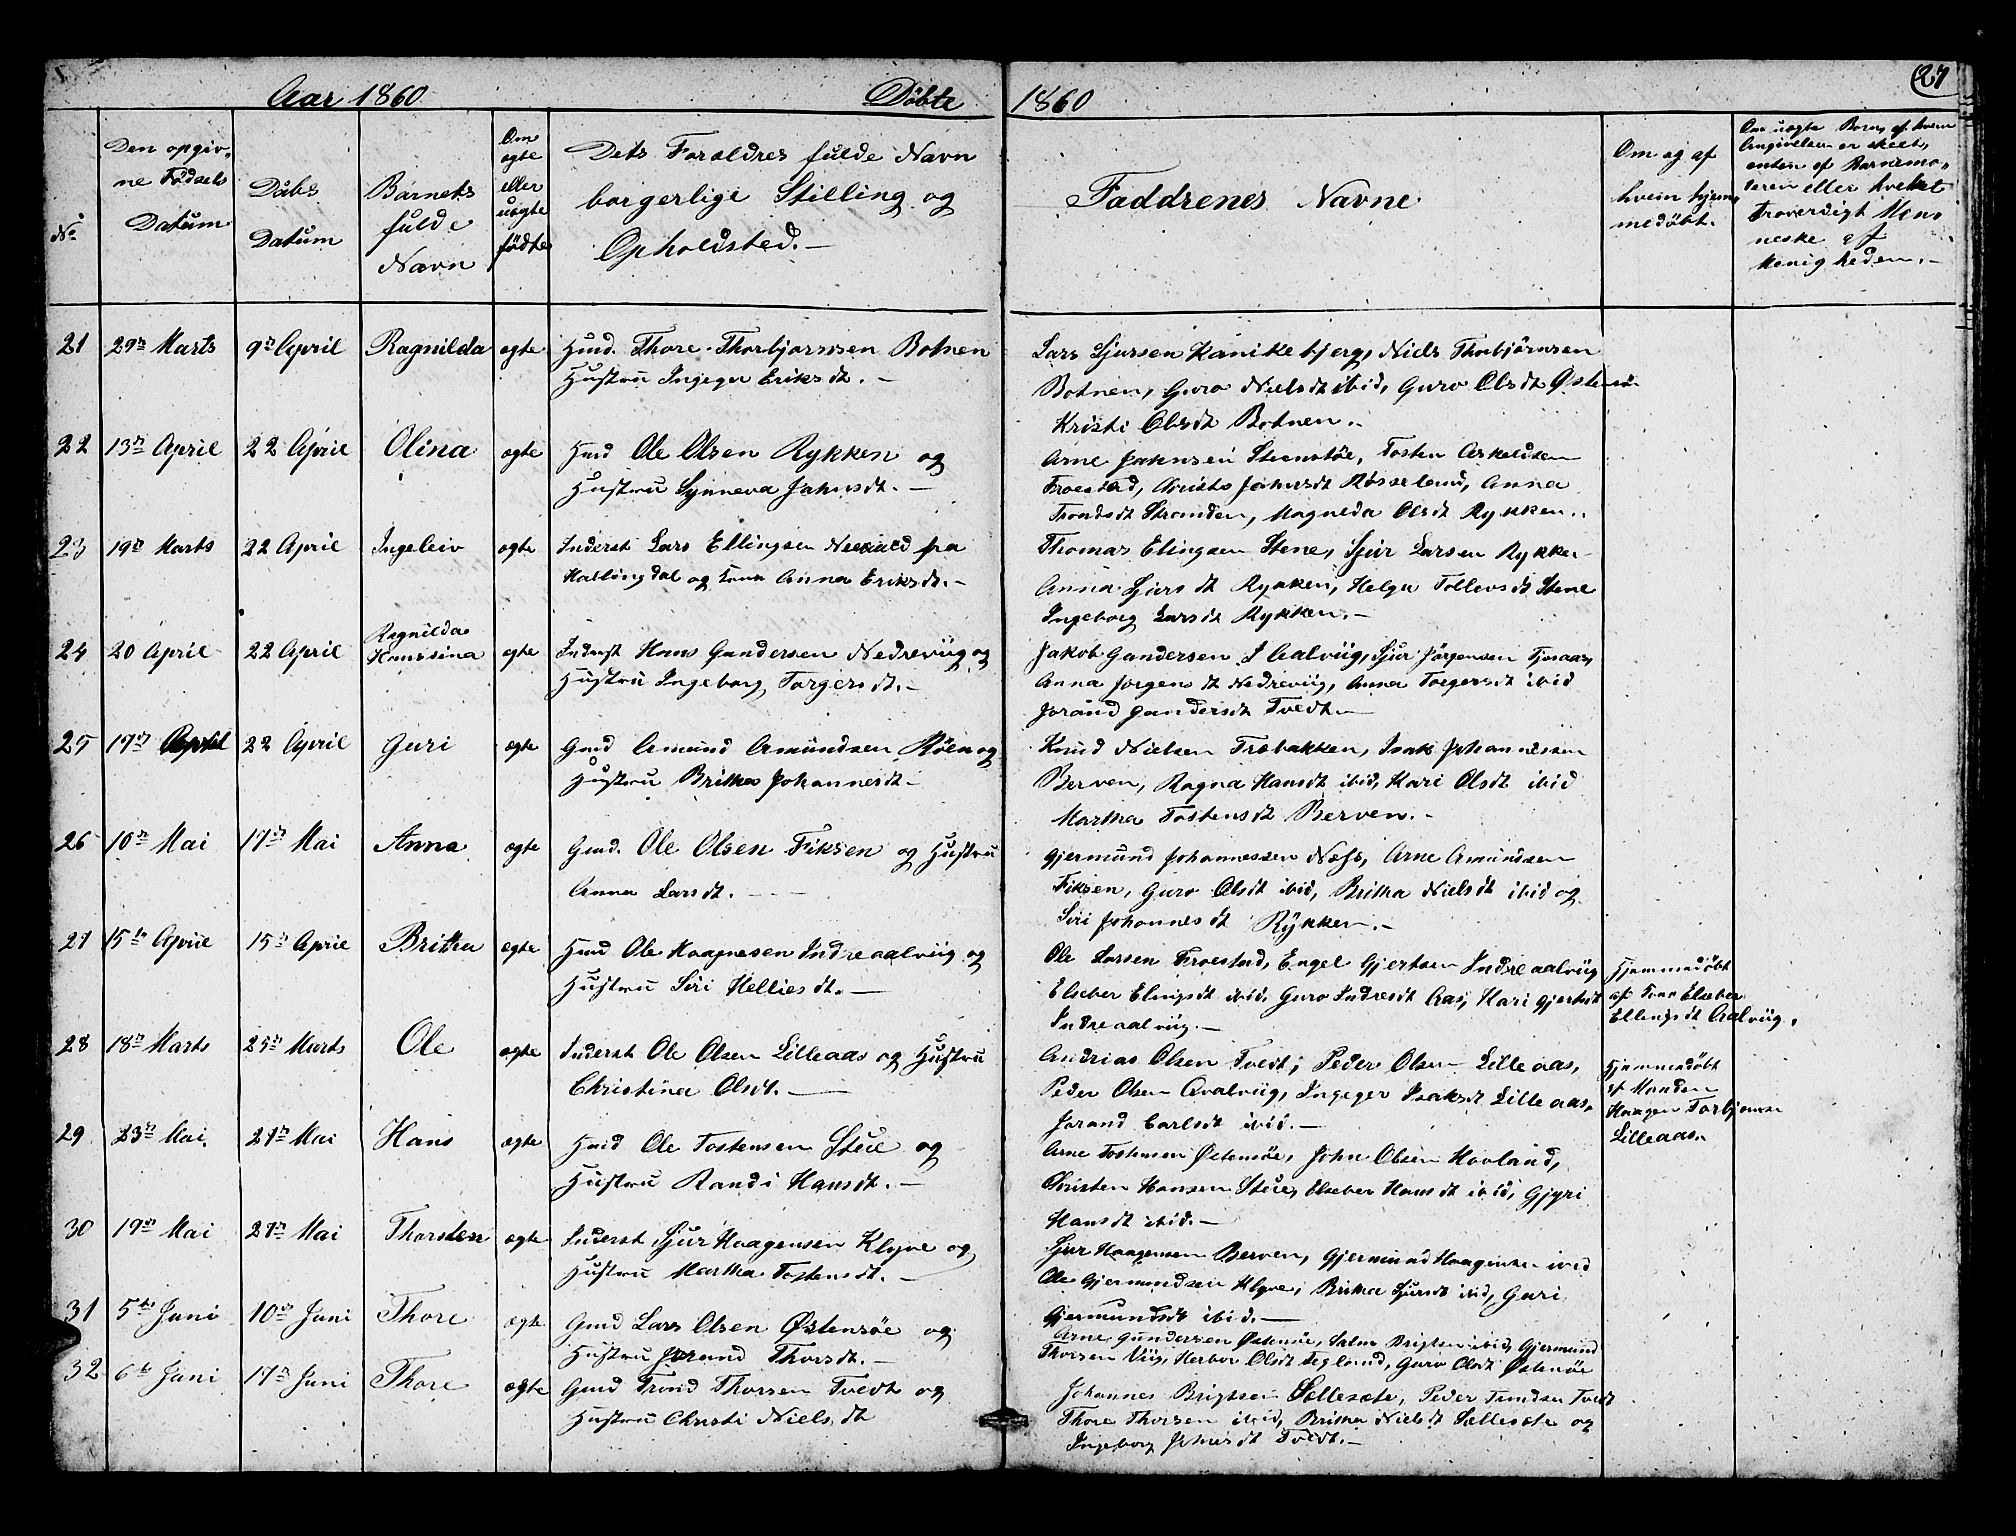 Aar 1860 Døbte 1860 27
No
Den opgiv,
ne Fødsels
Datum
Daabs
Datum
Barnets
fulde
Navn
Om
ægte
eller
uægte
fødte
Dets Forældres fulde Navn
borgerlige Stilling og
Opholdsted.-
Faddrenes Navne
Om og af
hvem hjem,
medøbt.
Om uægte Born, af hvem
Angivelsen er skeet,
enten af Barnemo,
deren eller hvilket
troverdigt Men,
neske af
Menigheden.-
21 29n Marts 9n April Ragnilda ægte Hmd. Thore Thorbjørnsen Botnen
Hustru Ingeger Eriksdt.-
Lars Sjursen Kanikebjerg, Niels Thorbjørnsen
Botnen, Guro Nielsdt ibid, Guro Olsdt Østensø
Kristi Olsdt Botnen.-
22 13n April 22 April Olina ægte Hmd Ole Olsen Rykken og
Hustru Synneva Johnsdt.-
Arne Johnsen Steenstøe, Tosten Askeldsen
Froestad, Christi Johnsdt Røsseland, Anna
Trondsdt Stranden, Magnilda Olsdt Rykken.
23 19n Marts 22 April Ingeleiv ægte Inderst Lars Ellingsen fra
Hallingdal og Kone Anna Eriksdt.-
Thomas Elingsen Stene, Sjur Larsen Rykken
Anna Sjursdt Rykken, Helga Tollevsdt Stene
Ingeborg Larsdt Rykken.-
24 20 April 22 April Ragnilda
Hanssina ægte Inderst Hans Gundersen Nedreviig og
Hustru Ingeborg Torgersdt.-
Jakob Gundersen I Aalviig, Sjur Jørgensen Tjosaas,
Anna Jørgensdt Nedreviig, Anna Torgersdt ibid
Jorand Gundersdt Tvedt.-
25 17n April 22 April Guri ægte Gmd Amund Amundsen Røen og
Hustru Britha Johannesdt.-
Knud Nielsen Træbakken, Isak Johannessen
Berven, Ragna Hansdt ibid, Kari Olsdt ibid
Martha Tostensdt Berven.-
26 10n Mai 17n Mai Anna ægte Gmd. Ole Olsen Fiksen og Hustru
Anna Larsdt.-
Gjermund Johannessen Næss, Arne Amundsen
Fiksen, Guro Olsdt ibid, Britha Nielsdt ibid og
Siri Johannesdt Rykken.-
27 15n April 15n April Britha ægte Hmd Ole Haagnesen Indreaalviig og
Hustru Siri Helliesdt.-
Ole Larsen Froestad, Engel Gjertsen Indreaalviig
Elseber Elingsdt ibid, Guro Indresdt Aas, Kari Gjertsdt
Indreaalviig.-
Hjemmedøbt
af Kone Elseber
Ellingsdt Aalviig.
28 18n Marts 25n Marts Ole ægte Inderst Ole Olsen Lilleaas og Hustru
Christina Olsdt.-
Andrias Olsen Tvedt, Peder Olsen Lilleaas,
Peder Olsen Aalviig, Ingeger Isaksdt Lilleaas,
Jorand Carlsdt ibid.-
Hjemmedøbt
af Manden
Haagen Torbjørnsen
Lilleaas.
29 23n Mai 27n Mai Hans ægte Hmd Ole Tostensen Steie og
Hustru Randi Hansdt.-
Arne Tostensen Østensøe, John Olsen Hovland,
Christen Hansen Steie, Elseber Hansdt ibid, Gjyri
Hansdt ibid.-
30 19n Mai 27n Mai Thorsten ægte Inderst Sjur Haagensen Klyve og
Hustru Martha Tostensdt.-
Sjur Haagensen Berven, Gjermund Haagensen ibid
Ole Gjermundsen Klyve, Britha Sjursdt ibid, Guri
Gjermundsdt ibid.-
31 5te Juni 10n Juni Thore ægte Gmd Lars Olsen Østensøe og
Hustru Jorand Thorsdt.-
Arne Gundersen Østensøe, Salm Brigtsen ibid, Gjermund
Thorsen Viig, Herbor Olsdt Tegland, Guro Olsdt Østensøe
32 6te Juni 17n Juni Thore ægte Gmd Trond Thorsen Tvedt og
Hustru Christi Nielsdt
Johannes Brigtsen Sællesæte, Peder Trondsen Tvedt
Thore Thorsen ibid, Britha Nielsdt Sællesæte og
Ingeborg Johnsdt Tvedt.-